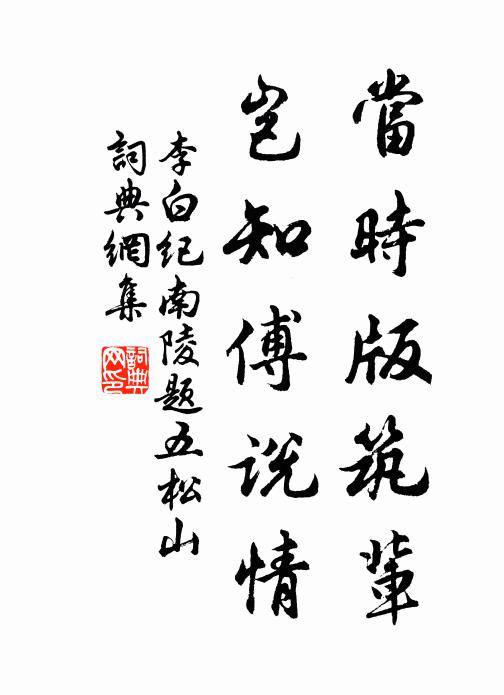 當時版筑輩
豈知傅説情
李白紀南陵题五松山
詞典網集
詞典網印